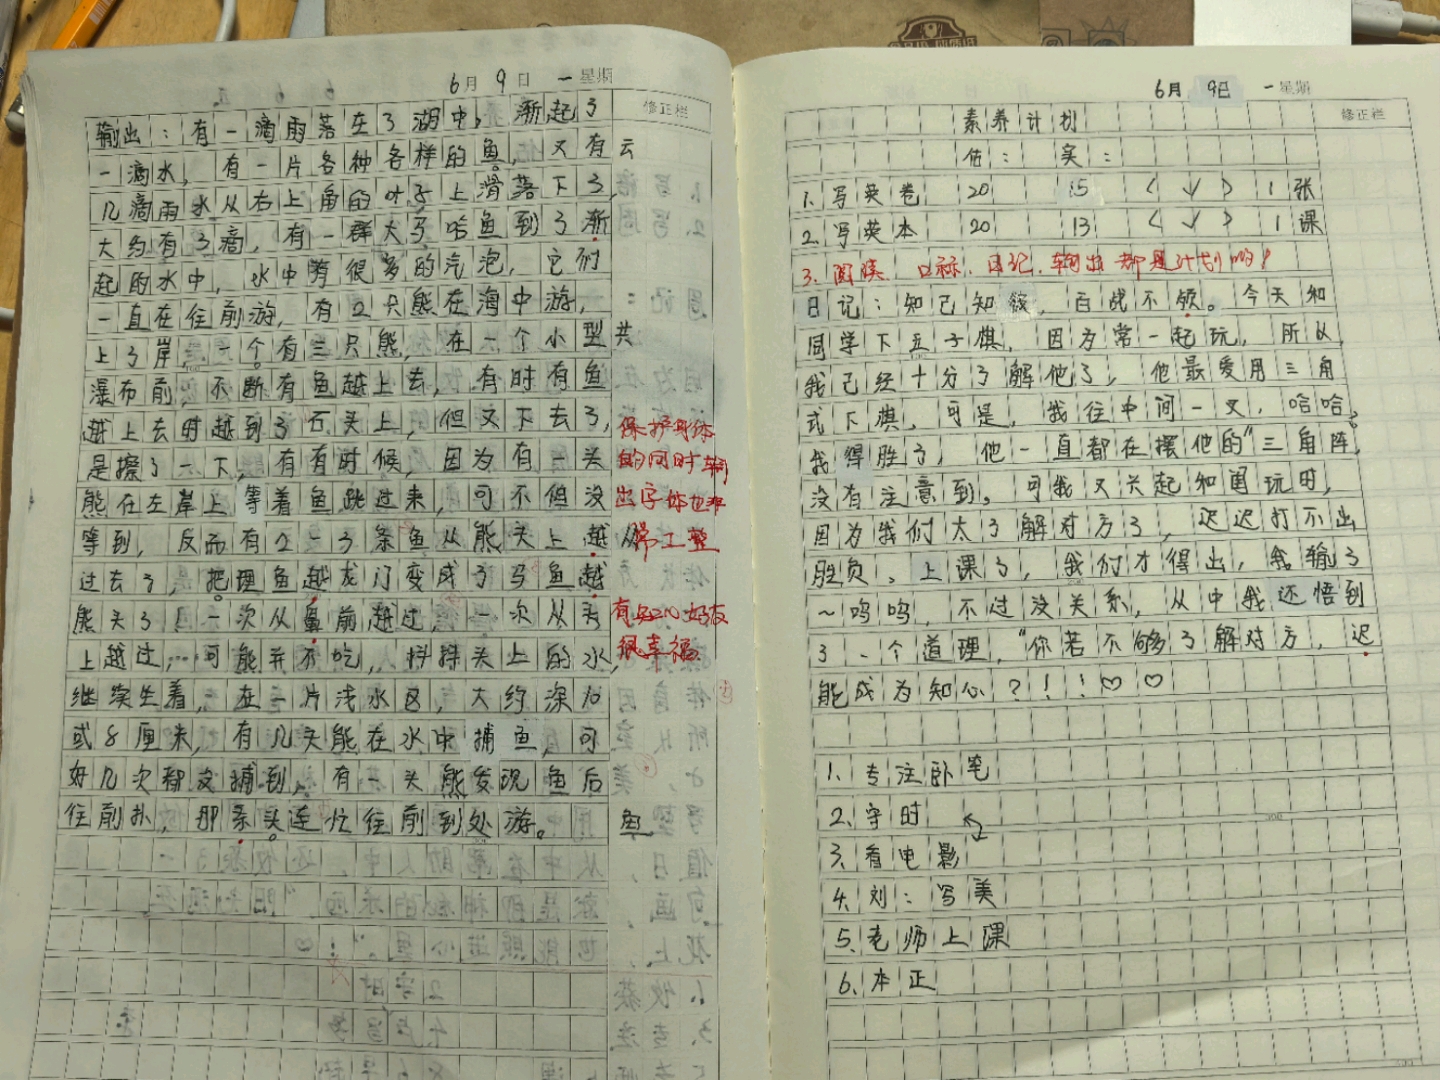 6月 9日 一 星期
修正栏
输出：有一滴雨落在了湖中，渐起了
一滴水，有一片各种各样的鱼，又有云
几滴雨水从右上角的叶子上滑落下了，
大约有3滴，有一群大马哈鱼到了渐
起的水中，水中有很多的汽泡，它们
一直在往前游，有2只熊在海中游，
上了岸，一个有三只熊，在一个小型共
瀑布前，不断有鱼越上去，有时有鱼
越上去时越到了石头上，但又下去了，
是擦了一下，有有时候，因为有一头
熊在左岸上等着鱼跳过来，可不但没
等到，反而有2－3条鱼从熊头上越从
过去了，把理鱼越龙门变成了马鱼越
熊头了，一次从鼻前越过，一次从头
上越过，可熊并不吃，抖抖头上的水，
继续生着，在一片浅水区，大约深10
或8厘米，有几头熊在水中捕鱼，可
好几次都支捕到，有一头熊发现鱼后
往前扑，那条头连忙往前到处游。鱼
保护身体
的同时输
出字体也非
常工整
有好友
很幸福
6月 9日 一 星期
修正栏
素养计划
估： 实：
1. 写英卷 20 15 〈 √ 〉 1张
2. 写英本 20 13 〈 √ 〉 1课
3. 阅读、口标、日记、输出都是计划哟！
日记：知己知彼，百战不领。今天和
同学下五子棋，因为常一起玩，所以
我已经十分了解他了，他最爱用三角
式下棋，可是，我往中间一叉，哈哈，
我得胜了，他一直都在摆他的“三角阵，
没有注意到。可我又关起和国玩时，
因为我们太了解对方了，迟迟打不出
胜负、上课了，我们才得出，我输了
～呜呜，不过没关系，从中我还悟到
了一个道理，“你若不够了解对方，迟
能成为知心？！！♡♡
1. 专注卧笔
2. 守时
3. 看电影
4. 刘：写美
5. 老师上课
6. 本正